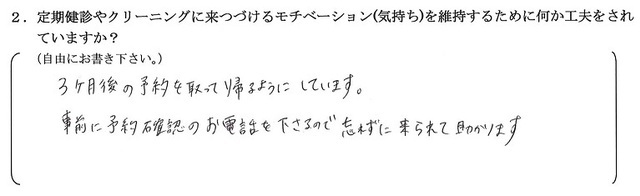 ２．定期健診やクリーニングに来つづけるモチベーション(気持ち)を維持するために何か工夫をされ
ていますか？
(自由にお書き下さい。)
3ヶ月後の予約を取って帰るようにしています。
事前に予約確認のお電話を下さるので忘れずに来られて助かります